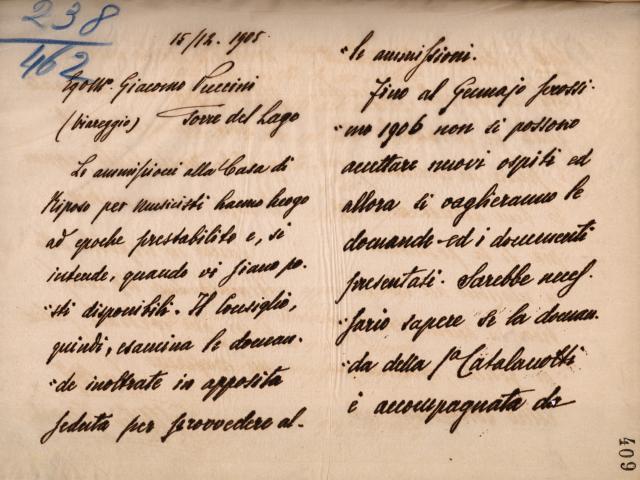 238
462
15/12. 1905.
Egr. Mo. Giacomo Puccini
(Viareggio) Torre del Lago
Le ammissioni alla Casa di
Riposo per Musicisti hanno luogo
ad epoche prestabilite e, si
intende, quando vi siano po-
sti disponibili. Il Consiglio,
quindi, esamina le doman-
de inoltrate in apposita
seduta per provvedere al-
le ammissioni.
Fino al Gennajo prossi-
mo 1906 non si possono
accettare nuovi ospiti ed
allora si vaglieranno le
domande ed i documenti
presentati. Sarebbe neces-
sario sapere se la doman-
da della Sra Catalanotti
è accompagnata da
409